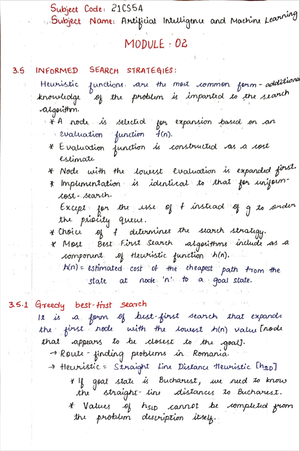 Subject Code: 21CS54
Subject Name: Artificial Intelligence and Machine Learning
MODULE - 02
3.5 INFORMED SEARCH STRATEGIES:
Heuristic functions are the most common form - additional
knowledge of the problem is imparted to the search
algorithm.
* A node is selected for expansion based on an
evaluation function f(n).
* Evaluation function is constructed as a cost
estimate.
* Node with the lowest evaluation is expanded first.
* Implementation is identical to that for uniform-
cost-search.
Except for the use of f instead of g to order
the priority queue.
* Choice of f determines the search strategy.
* Most Best First Search algorithms include as a
component of Heuristic function h(n).
h(n) = Estimated cost of the cheapest path from the
state at node 'n' to a goal state.
3.5.1 Greedy best-first search
It is a form of best-first search that expands
the first node with the lowest h(n) value [node
that appears to be closest to the goal].
→ Route-finding problems in Romania.
→ Heuristic = Straight Line Distance Heuristic [hSLD]
* If goal state is Bucharest, we need to know
the straight-line distances to Bucharest.
* Values of hSLD cannot be completed from
the problem description itself.